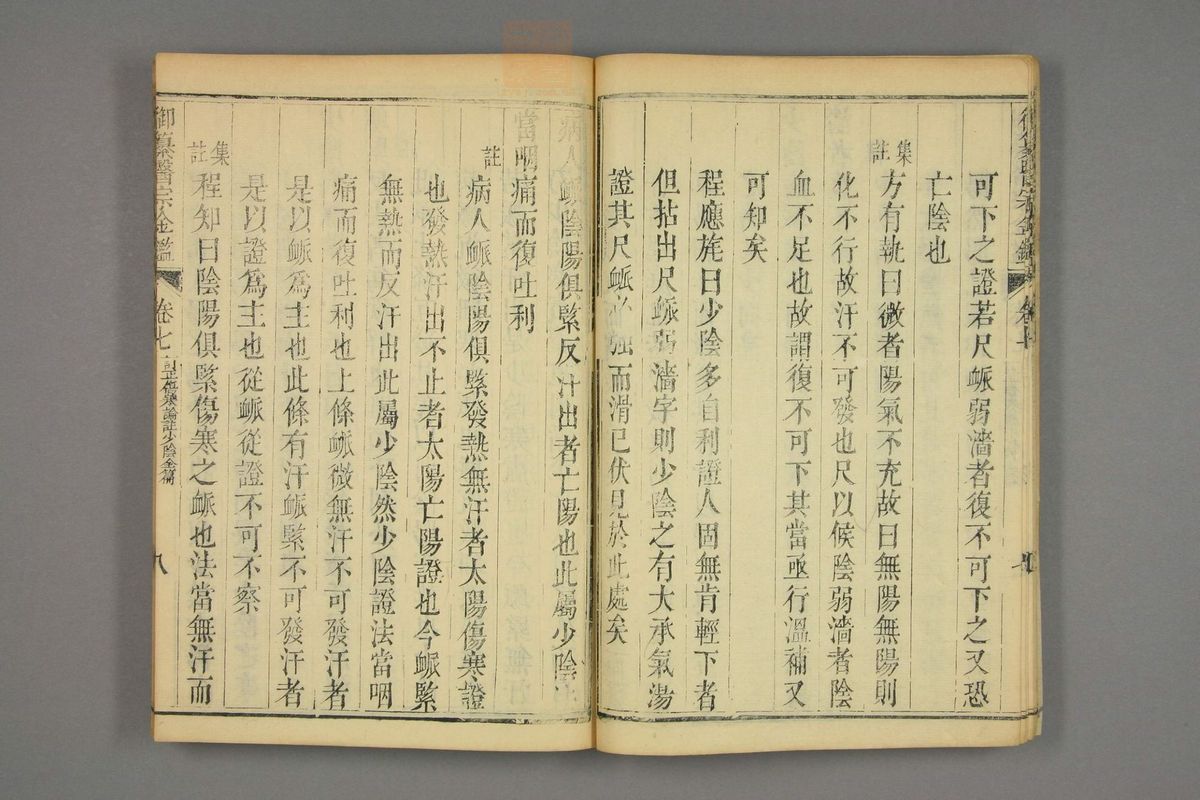 可下之證若尺脈弱濇者復不可下之又恐
亡陰也
集註
方有執曰微者陽氣不充故曰無陽無陽則
化不行故汗不可發也尺以候陰弱濇者陰
血不足也故謂復不可下其當亟行溫補又
可知矣
程應旄曰少陰多自利證人固無肯輕下者
但拈出尺脈弱濇字則少陰之有大承氣湯
證其尺脈必强而滑已伏見於此處矣
病人脈陰陽俱緊反汗出者亡陽也此屬少陰法
當咽痛而復吐利
註
病人脈陰陽俱緊發熱無汗者太陽傷寒證
也發熱汗出不止者太陽亡陽證也今脈緊
無熱而反汗出此屬少陰然少陰證法當咽
痛而復吐利也上條脈微無汗不可發汗者
是以脈爲主也此條有汗脈緊不可發汗者
是以證爲主也從脈從證不可不察
集註
程知曰陰陽俱緊傷寒之脈也法當無汗而
御纂醫宗金鑑 卷七 訂正傷寒論註少陰全篇 八